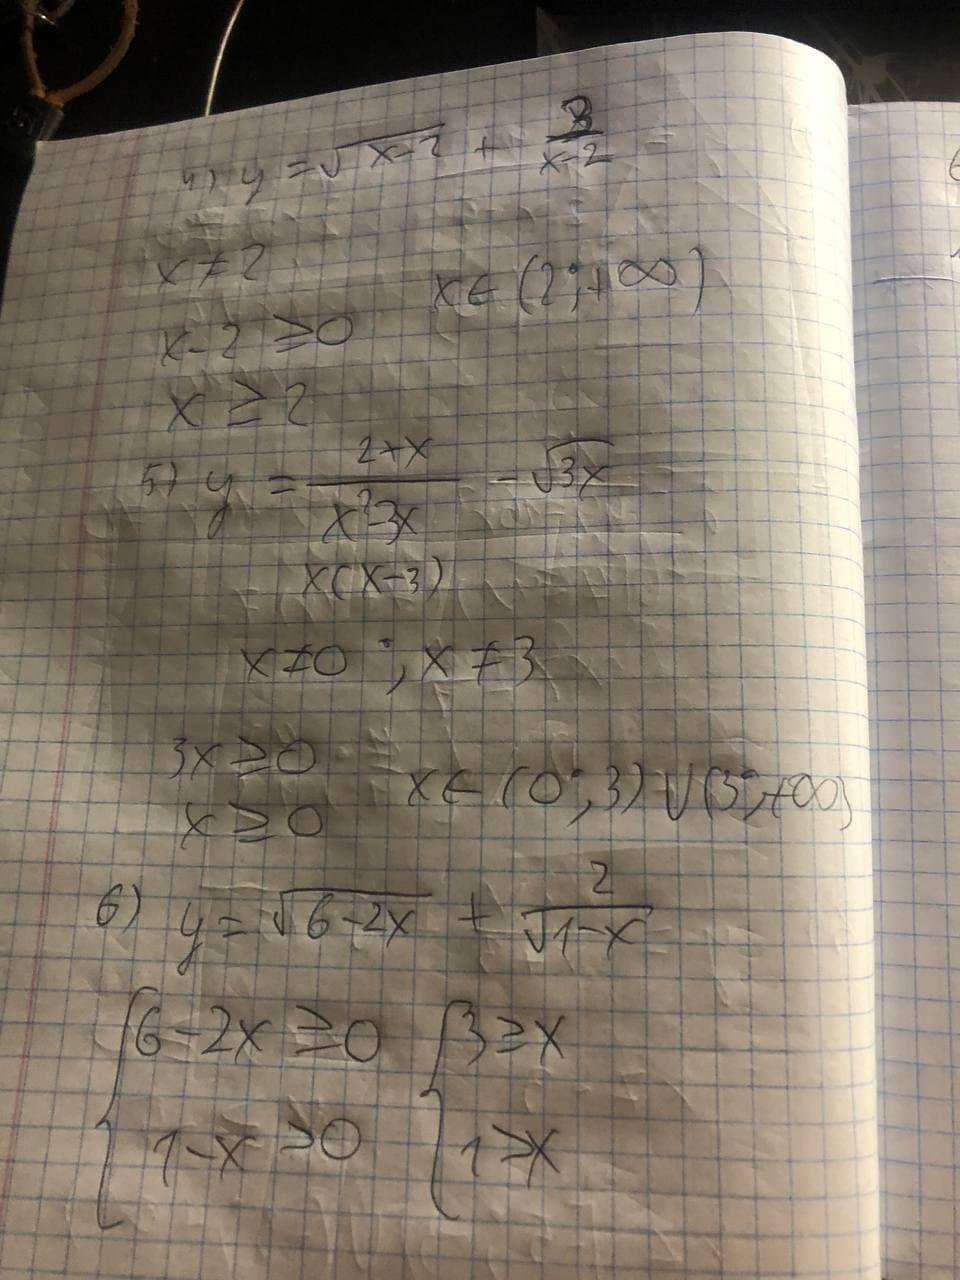 4) y = √(x-2) + 3/(x-2)
x ≠ 2
x ∈ (2; +∞)
x - 2 ≥ 0
x ≥ 2
5) y = (2+x)/(x²-3x) - √(3x)
x(x-3)
x ≠ 0 ; x ≠ 3
3x ≥ 0
x ∈ (0; 3) ∪ (3; +∞)
x ≥ 0
6) y = √(6-2x) + 2/√(1-x)
{ 6-2x ≥ 0 { 3 ≥ x
1-x > 0 1 > x